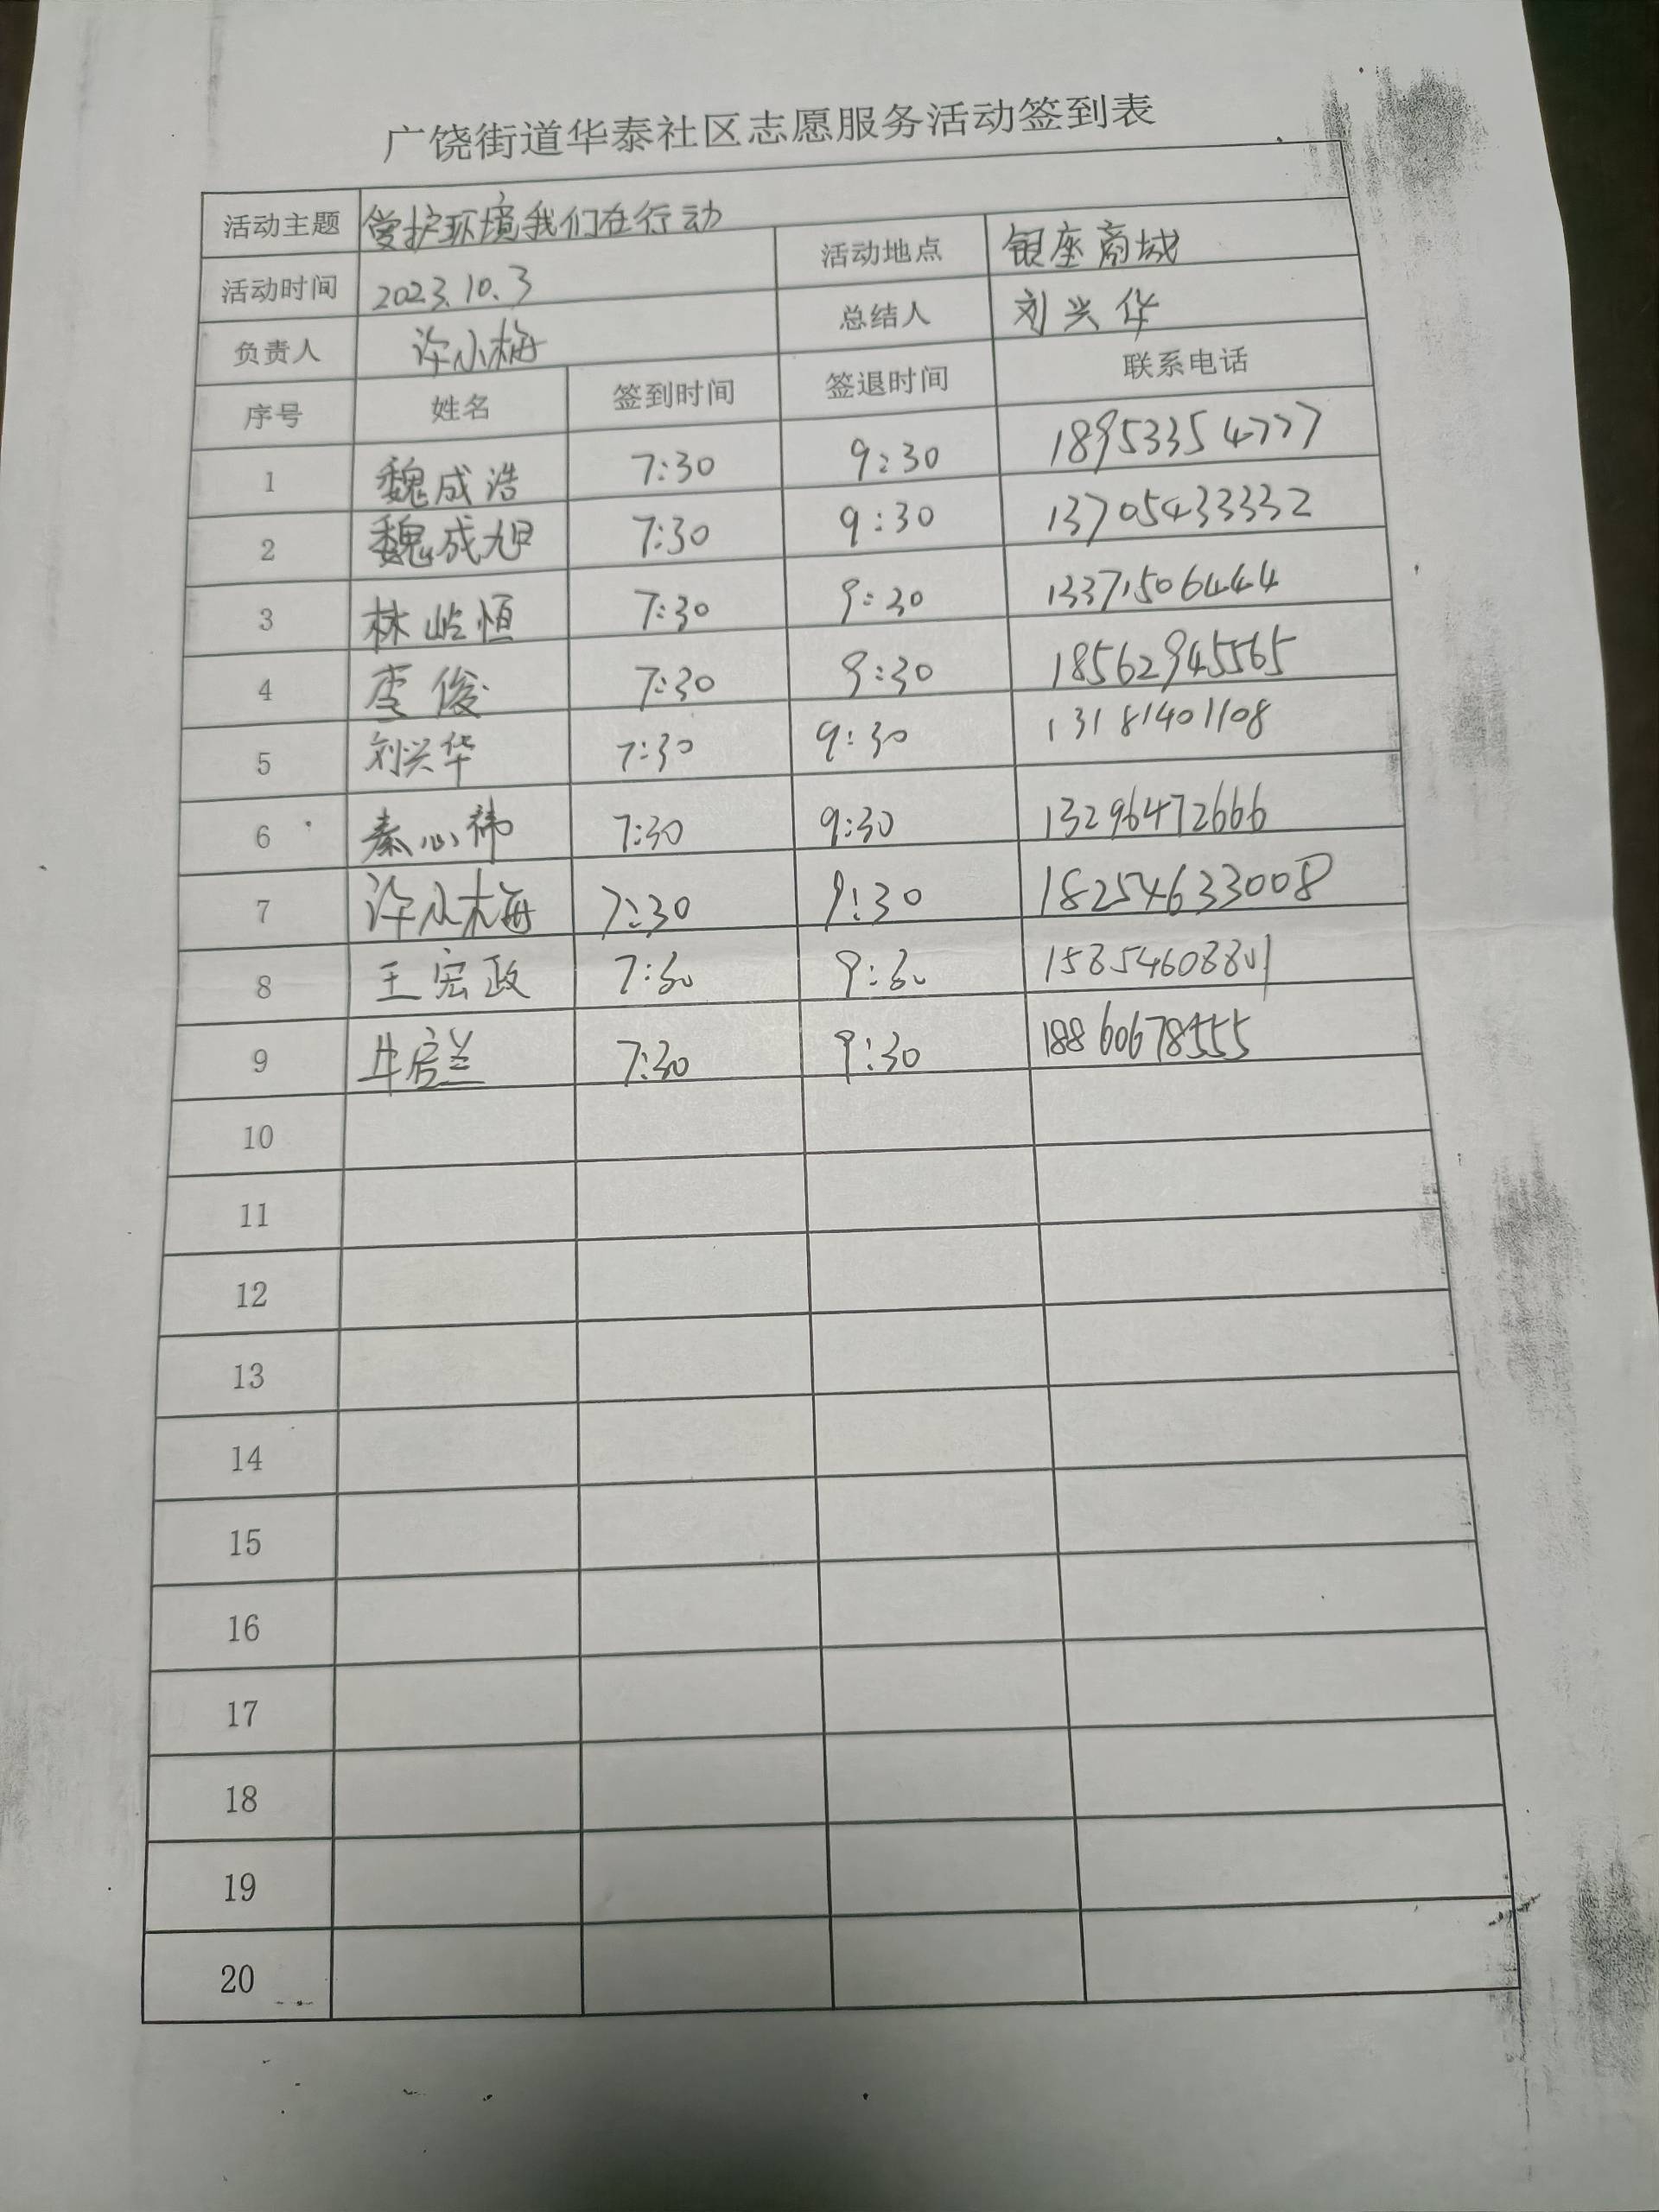 广饶街道华泰社区志愿服务活动签到表
活动主题 爱护环境我们在行动
活动时间 2023.10.3 活动地点 银座商城
负责人 许小梅 总结人 刘兴华
序号 姓名 签到时间 签退时间 联系电话
1 魏成浩 7:30 9:30 18953354777
2 魏成旭 7:30 9:30 13705433332
3 林屹恒 7:30 9:30 13371506444
4 李俊 7:30 9:30 18562945565
5 刘兴华 7:30 9:30 13181401108
6 秦心祎 7:30 9:30 13296472666
7 许小梅 7:30 9:30 18254633008
8 王宏政 7:30 9:30
9 7:30 9:30 18860678555
10
11
12
13
14
15
16
17
18
19
20